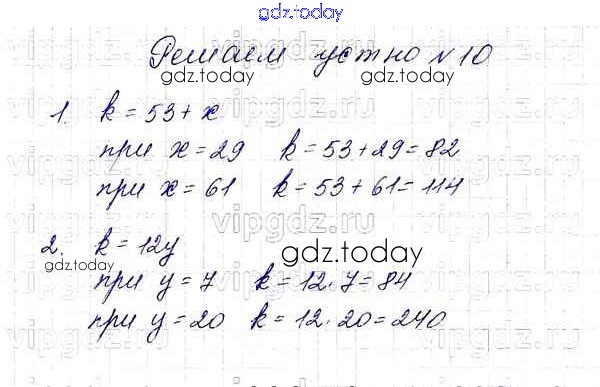 gdz.today
Решаем устно №10
gdz.today gdz.today
1. k = 53 + x
vipgdz.ru vipgdz.ru
при x = 29 k = 53 + 29 = 82
при x = 61 k = 53 + 61 = 114
vipgdz.ru
2. k = 12y
gdz.today gdz.today
при y = 7 k = 12 · 7 = 84
при y = 20 k = 12 · 20 = 240
vipgdz.ru vipgdz.ru